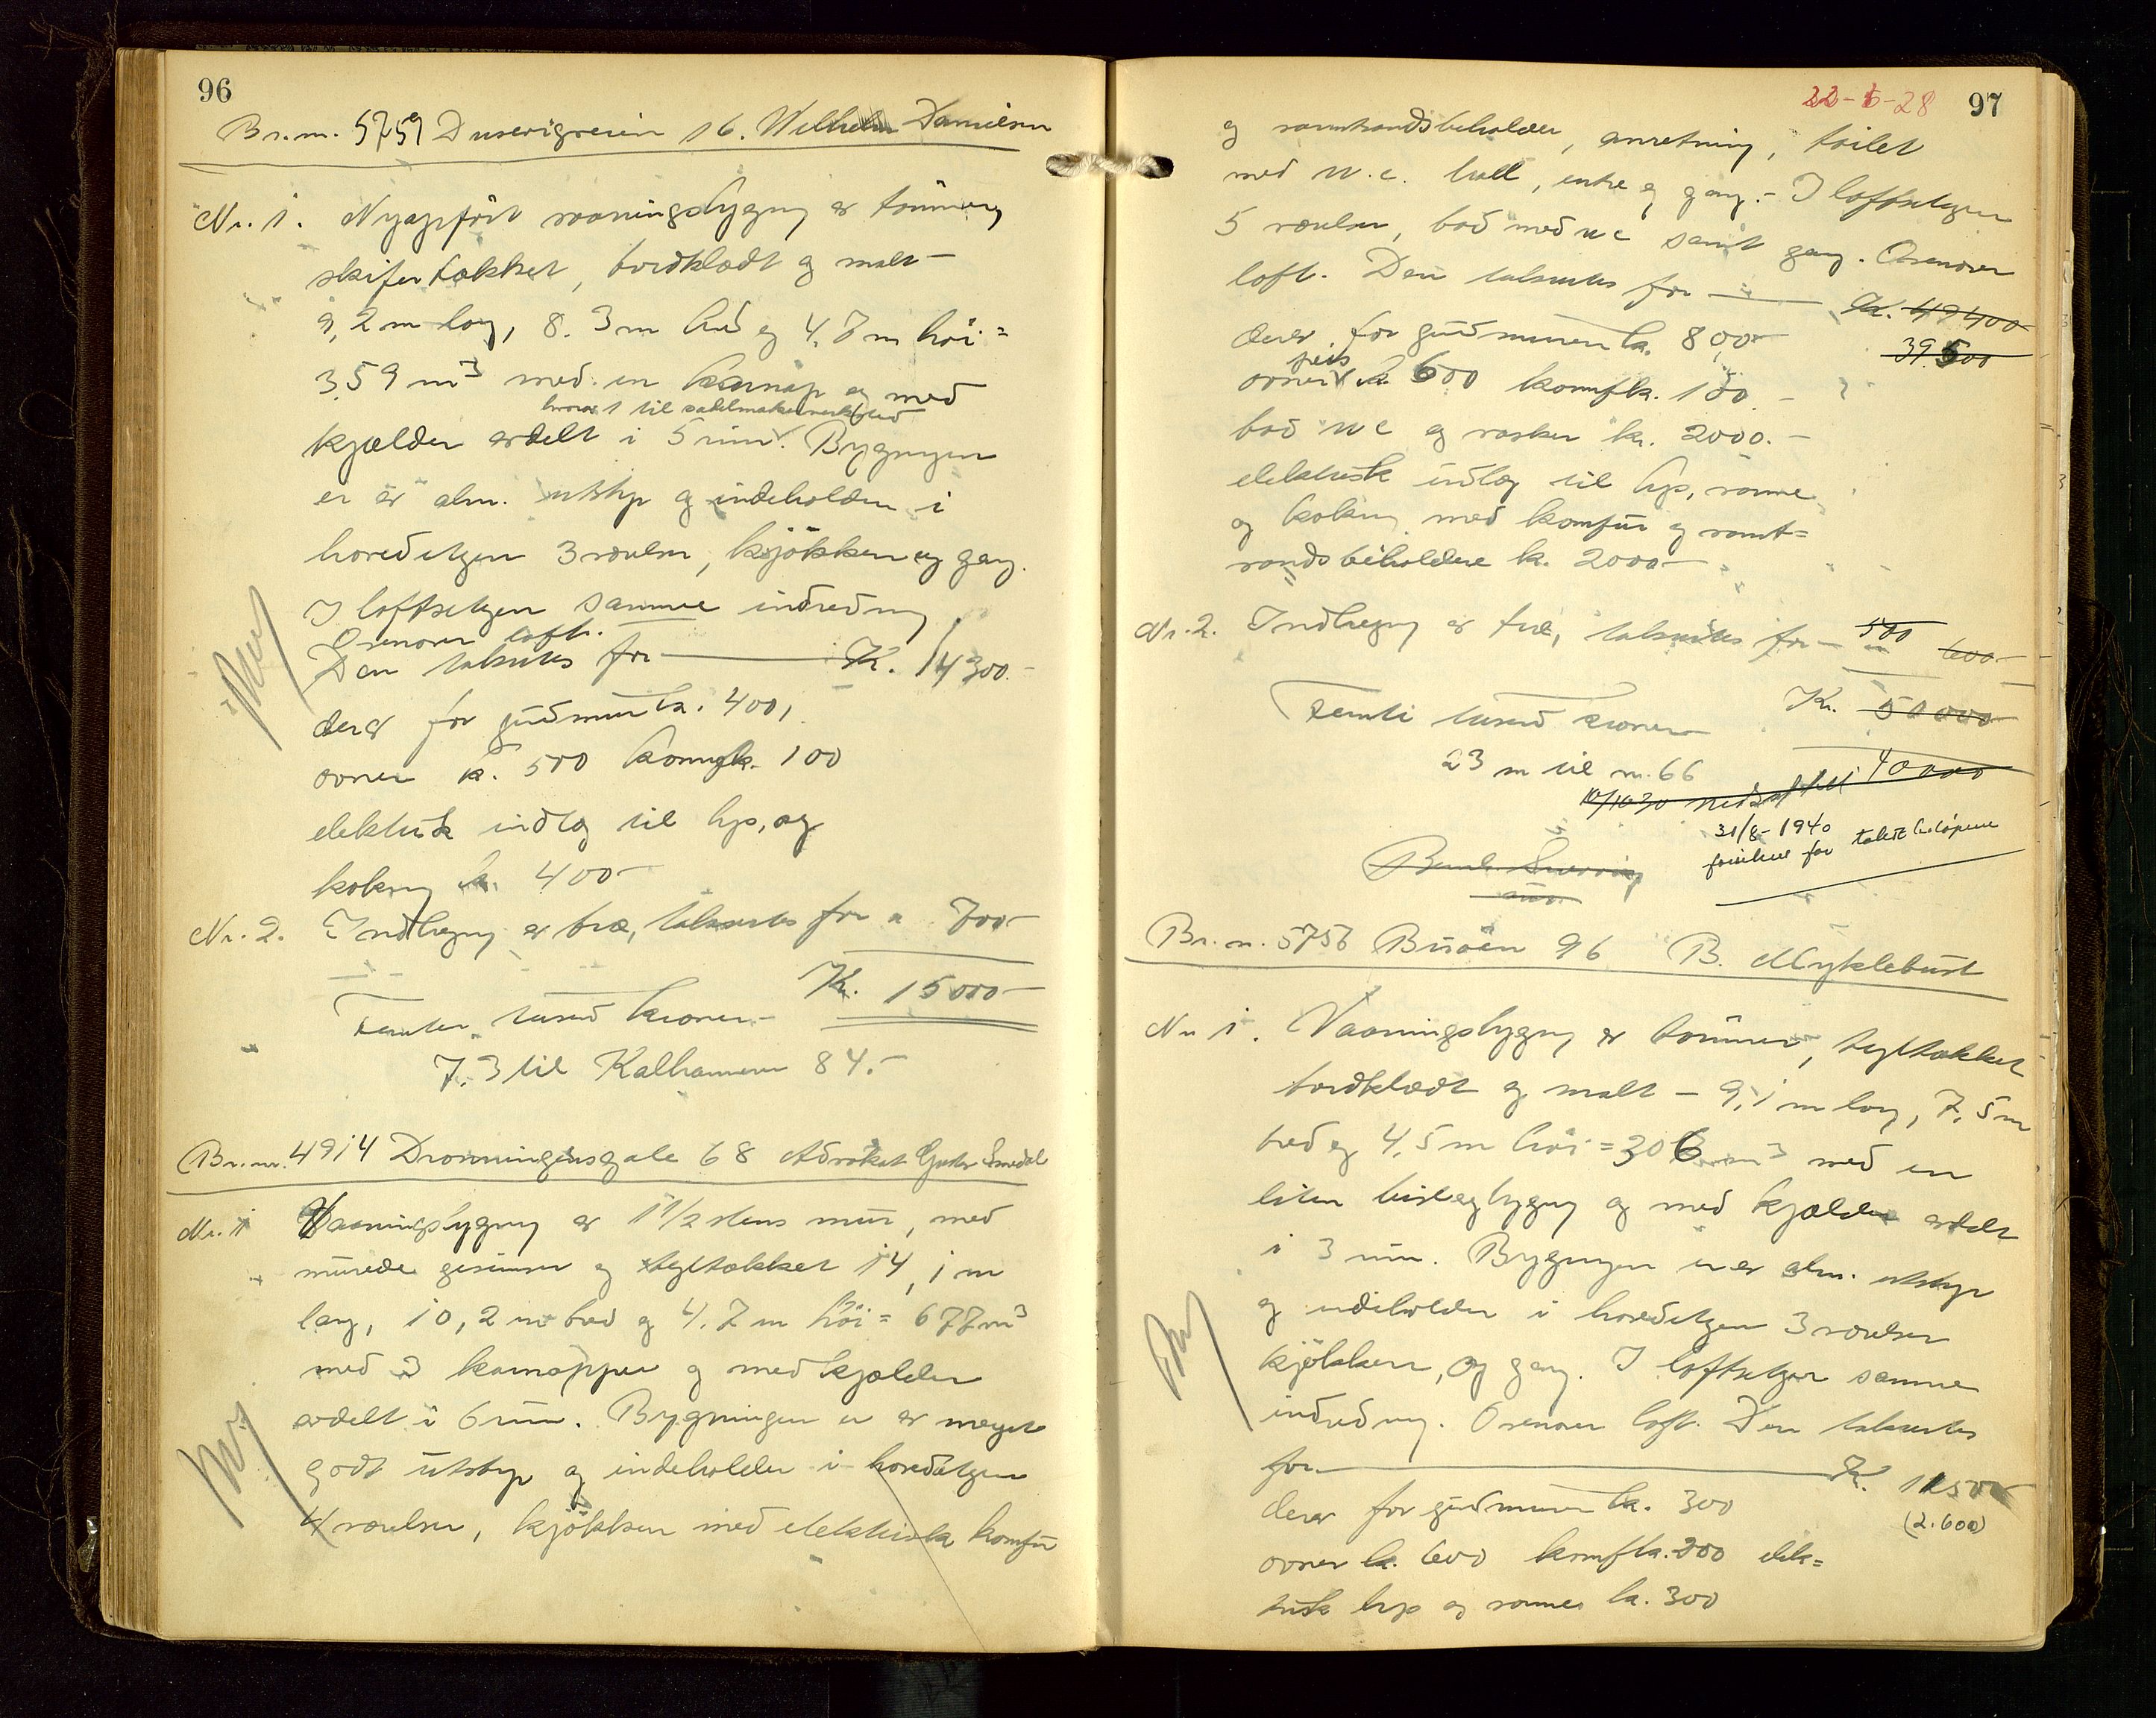 96
Br.nr. 5759 Dusevigveien 16. Wilhelm Danielsen
Nr. 1. Nyopført vaaningsbygng av tømmer,
skifertækket, bordklædt og malt –
9,2 m lang, 8.3 m bred og 4.7 m høi =
359 m³ med en karnap og med
hvorav 1 til sadelmakerverksted
kjælder avdelt i 5 rum. Bygngen
er av alm. utstyr og indeholder i
hovedetgen 3 værelser, kjøkken og gang.
I loftsetgen samme indredning
Ovenover loft.
Den takseres for — Kr. 14300.–
derav for grundmur kr. 400,
ovner kr. 500 komf kr. 100
elektrisk indlæg til lys, og
kokning kr. 400–
Nr. 2. Indhegng av træ, takseres for " 700–
Kr. 15000–
Femten tusend kroner–
7.3 til Kalhammeren 84.–
Br.nr. 4914 Dronningensgate 68 Advokat Gustav Smedal
Nr. 1 Vaaningsbygng av 1½ stens mur, med
murede gesimser og tegltækket 14,1 m
lang, 10,2 m bred og 4.7 m høi = 677 m³
med 3 karnapper og med kjælder
avdelt i 6 rum. Bygningen er av meget
godt utstyr og indeholder i hovedetgen
4 værelser, kjøkken med elektrisk komfur
22-5-28 97
og varmtvandsbeholder, anretning, toilet
med w.c. hall, entre og gang.– I loftsetgen
5 værelser, bad med wc samt gang. Ovenover
loft. Den takseres for — Kr. 49400
39.500
derav for grundmuren kr. 800–
peis
ovner kr. 600 komf kr. 100.–
bad wc og vasker kr. 2000.–
elektrisk indlæg til lys, varme
og kokning med komfur og varmt=
vandsbeholdere kr. 2000–
Nr. 2. Indhegng av træ, takseres for – 500 600–
Femti tusend kroner– Kr. 50000–
40000
23 m til nr. 66
10/10 30 nedsat til
31/8-1940
takstbeløpene
Br.nr. 5756 Buøen 96 B. Myklebust
Nr 1. Vaaningsbygng av tømmer, tegltækket
bordklædt og malt – 9,1 m lang, 7,5 m
bred og 4,5 m høi = 306 m³ med en
liten bislagbygng og med kjælder avdelt
i 3 rum. Bygngen er av alm. utstyr
og indeholder i hovedetgen 3 værelser
kjøkken, og gang. I loftsetgen samme
indredning. Ovenover loft. Den takseres
for — Kr. 11500
(2.600)
derav for grundmuren kr. 300
ovner kr. 600 komf kr. 200 elek=
trisk lys og varme kr. 300